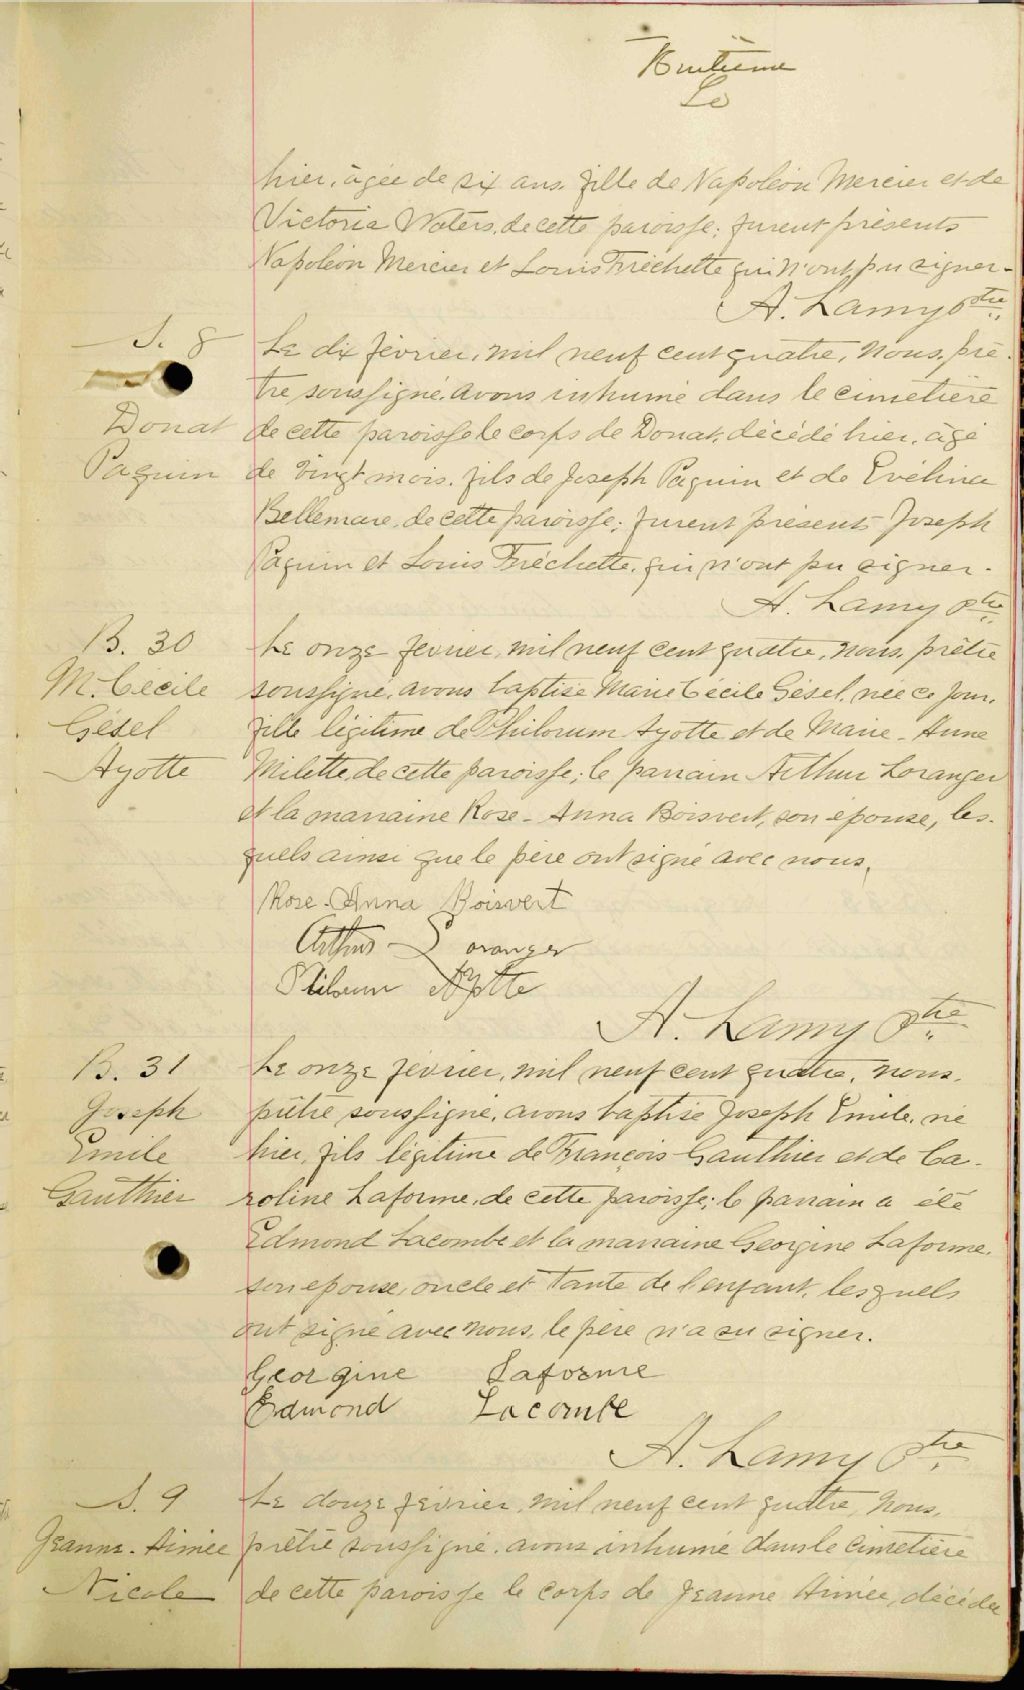 Huitième
Le
hier, âgée de six ans, fille de Napoléon Mercier et de
Victoria Waters, de cette paroisse; furent présents
Napoléon Mercier et Louis Fréchette qui n'ont pu signer.
A. Lamy Ptre
S. 8
Donat
Paquin
Le dix février, mil neuf cent quatre, nous, prê-
tre soussigné, avons inhumé dans le cimetière
de cette paroisse le corps de Donat, décédé hier, âgé
de vingt mois, fils de Joseph Paquin et de Evélina
Bellemare, de cette paroisse; furent présents Joseph
Paquin et Louis Fréchette, qui n'ont pu signer.
A. Lamy Ptre
B. 30
M. Cécile
Gésel
Ayotte
Le onze février, mil neuf cent quatre, nous, prêtre
soussigné, avons baptisé Marie Cécile Gésel, née ce jour,
fille légitime de Philorum Ayotte et de Marie-Anne
Milette, de cette paroisse; le parrain Arthur Loranger
et la marraine Rose-Anna Boisvert, son épouse, les-
quels ainsi que le père ont signé avec nous,
Rose-Anna Boisvert
Arthur Loranger
Philorum Ayotte
A. Lamy Ptre
B. 31
Joseph
Emile
Gauthier
Le onze février, mil neuf cent quatre, nous,
prêtre soussigné, avons baptisé Joseph Emile, né
hier, fils légitime de François Gauthier et de Ca-
roline Laforme, de cette paroisse; le parrain a été
Edmond Lacombe et la marraine Georgine Laforme,
son épouse, oncle et tante de l'enfant, lesquels
ont signé avec nous, le père n'a su signer.
Georgine Laforme
Edmond Lacombe
A. Lamy Ptre
S. 9
Jeanne-Aimée
Nicole
Le douze février, mil neuf cent quatre, nous,
prêtre soussigné, avons inhumé dans le cimetière
de cette paroisse le corps de Jeanne Aimée, décédée